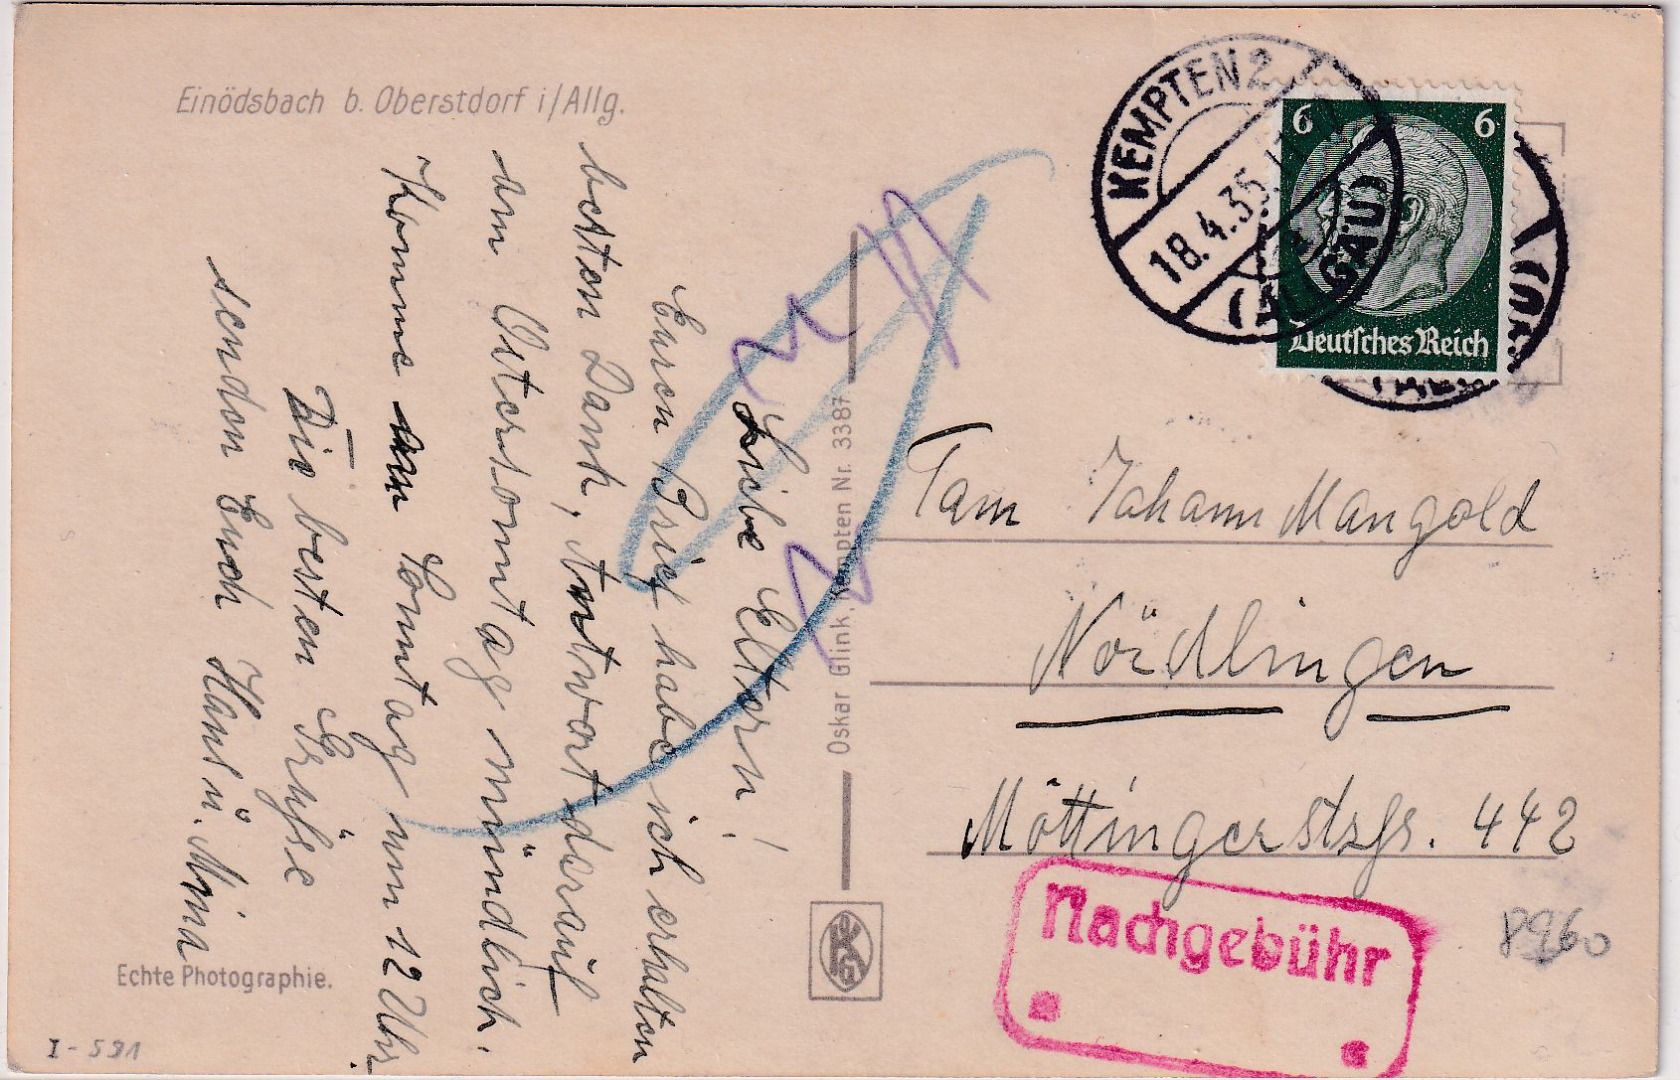 Einödsbach b. Oberstdorf i/Allg.
Liebe Eltern!
Euren Brief habe ich erhalten
besten Dank, Antwort darauf
am Ostersonntag mündlich.
Komme am Sonntag um 12 Uhr.
Die besten Grüße
senden Euch Hans u. Mina
Echte Photographie.
I-591
Oskar Glink, Kempten Nr. 3387
KEMPTEN 2
18.4.35.
(ALLGÄU)
6 6
Deutsches Reich
Fam Johann Mangold
Nördlingen
Möttingerstrß. 442
Nachgebühr
8960